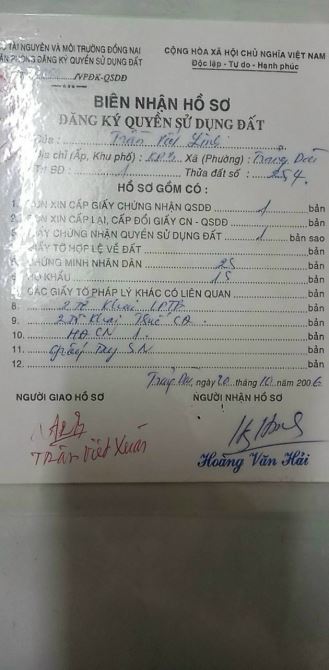 TÀI NGUYÊN VÀ MÔI TRƯỜNG ĐỒNG NAI
PHÒNG ĐĂNG KÝ QUYỀN SỬ DỤNG ĐẤT
/VPĐK-QSDĐ
CỘNG HÒA XÃ HỘI CHỦ NGHĨA VIỆT NAM
Độc lập - Tự do - Hạnh phúc
BIÊN NHẬN HỒ SƠ
ĐĂNG KÝ QUYỀN SỬ DỤNG ĐẤT
của : Trần
chỉ (Ấp, Khu phố) : KP3 Xã (Phường) : Trảng Dài
BĐ : 1 Thửa đất số : 254.
HỒ SƠ GỒM CÓ :
XIN CẤP GIẤY CHỨNG NHẬN QSDĐ 1 bản
XIN CẤP LẠI, CẤP ĐỔI GIẤY CN - QSDĐ bản
CHỨNG NHẬN QUYỀN SỬ DỤNG ĐẤT 1 bản sao
TỜ HỢP LỆ VỀ ĐẤT bản
CHỨNG MINH NHÂN DÂN 2S bản
KHẨU 1S bản
CÁC GIẤY TỜ PHÁP LÝ KHÁC CÓ LIÊN QUAN bản
8. 2 Tờ Khai LPTB bản
9. 2 Tờ Khai Thuế bản
10. HĐ CN 1. bản
11. Giấy SN bản
12. bản
Trảng Dài, ngày 20 tháng 10 năm 2006
NGƯỜI GIAO HỒ SƠ
NGƯỜI NHẬN HỒ SƠ
Trần Viết Xuân
Hoàng Văn Hải